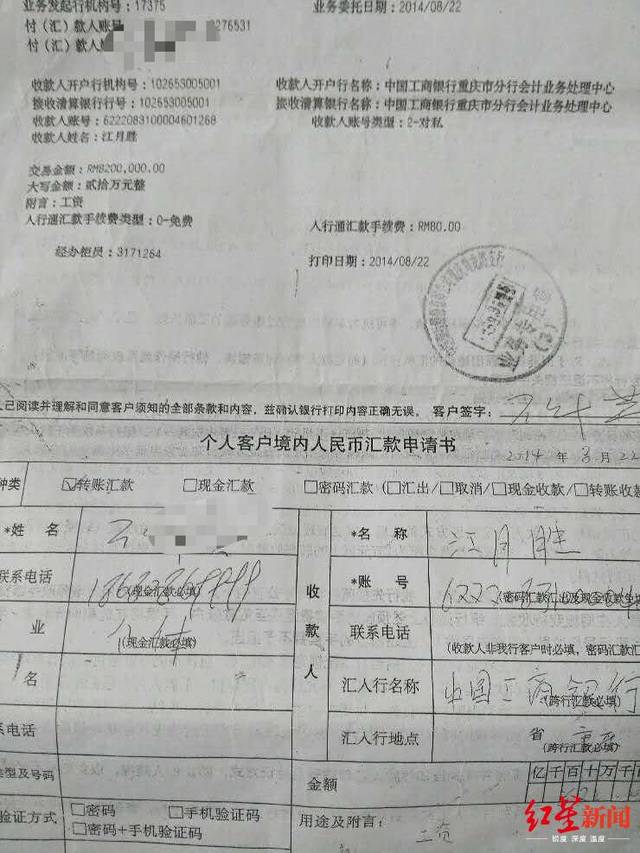 业务发起行机构号：17375 业务委托日期：2014/08/22
付（汇）款人账号 8276531
付（汇）款人
收款人开户行机构号：102653005001 收款人开户行名称：中国工商银行重庆市分行会计业务处理中心
接收清算银行行号：102653005001 接收清算银行名称：中国工商银行重庆市分行会计业务处理中心
收款人账号：6222083100004601268 收款人账号类型：2-对私
收款人姓名：江月胜
交易金额：RMB200,000.00
大写金额：贰拾万元整
附言：工资
人行通汇款手续费类型：0-免费 人行通汇款手续费：RMB0.00
经办柜员：3171264 打印日期：2014/08/22
人已阅读并理解和同意客户须知的全部条款和内容，兹确认银行打印内容正确无误。 客户签字：
个人客户境内人民币汇款申请书
2014 年 8 月 22
种类 ☑转账汇款 □现金汇款 □密码汇款（□汇出/□取消/□现金收款/□转账收款
*姓 名 *名 称 江月胜
联系电话 (现金汇款必填) *账 号 6222 (密码汇款汇出及现金收款
业 (现金汇款必填) 收款人 联系电话 (收款人非我行客户时必填，密码汇款汇
名 汇入行名称 中国工商银行 (跨行汇款必填)
系电话 汇入行地点 省 (跨行汇款必填)
类型及号码 金额 亿千百十万千
验证方式 □密码 □手机验证码
□密码+手机验证码 用途及附言： 工资
红星新闻
锐度 深度 温度